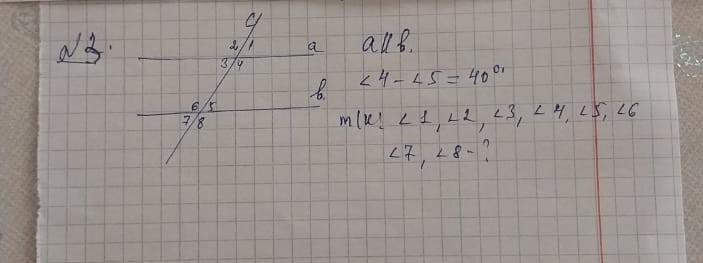 №3.
c
2 1 a
3 4
6 5 в.
7 8
a∥в.
∠4 - ∠5 = 40°.
т/к: ∠1, ∠2, ∠3, ∠4, ∠5, ∠6
∠7, ∠8 - ?